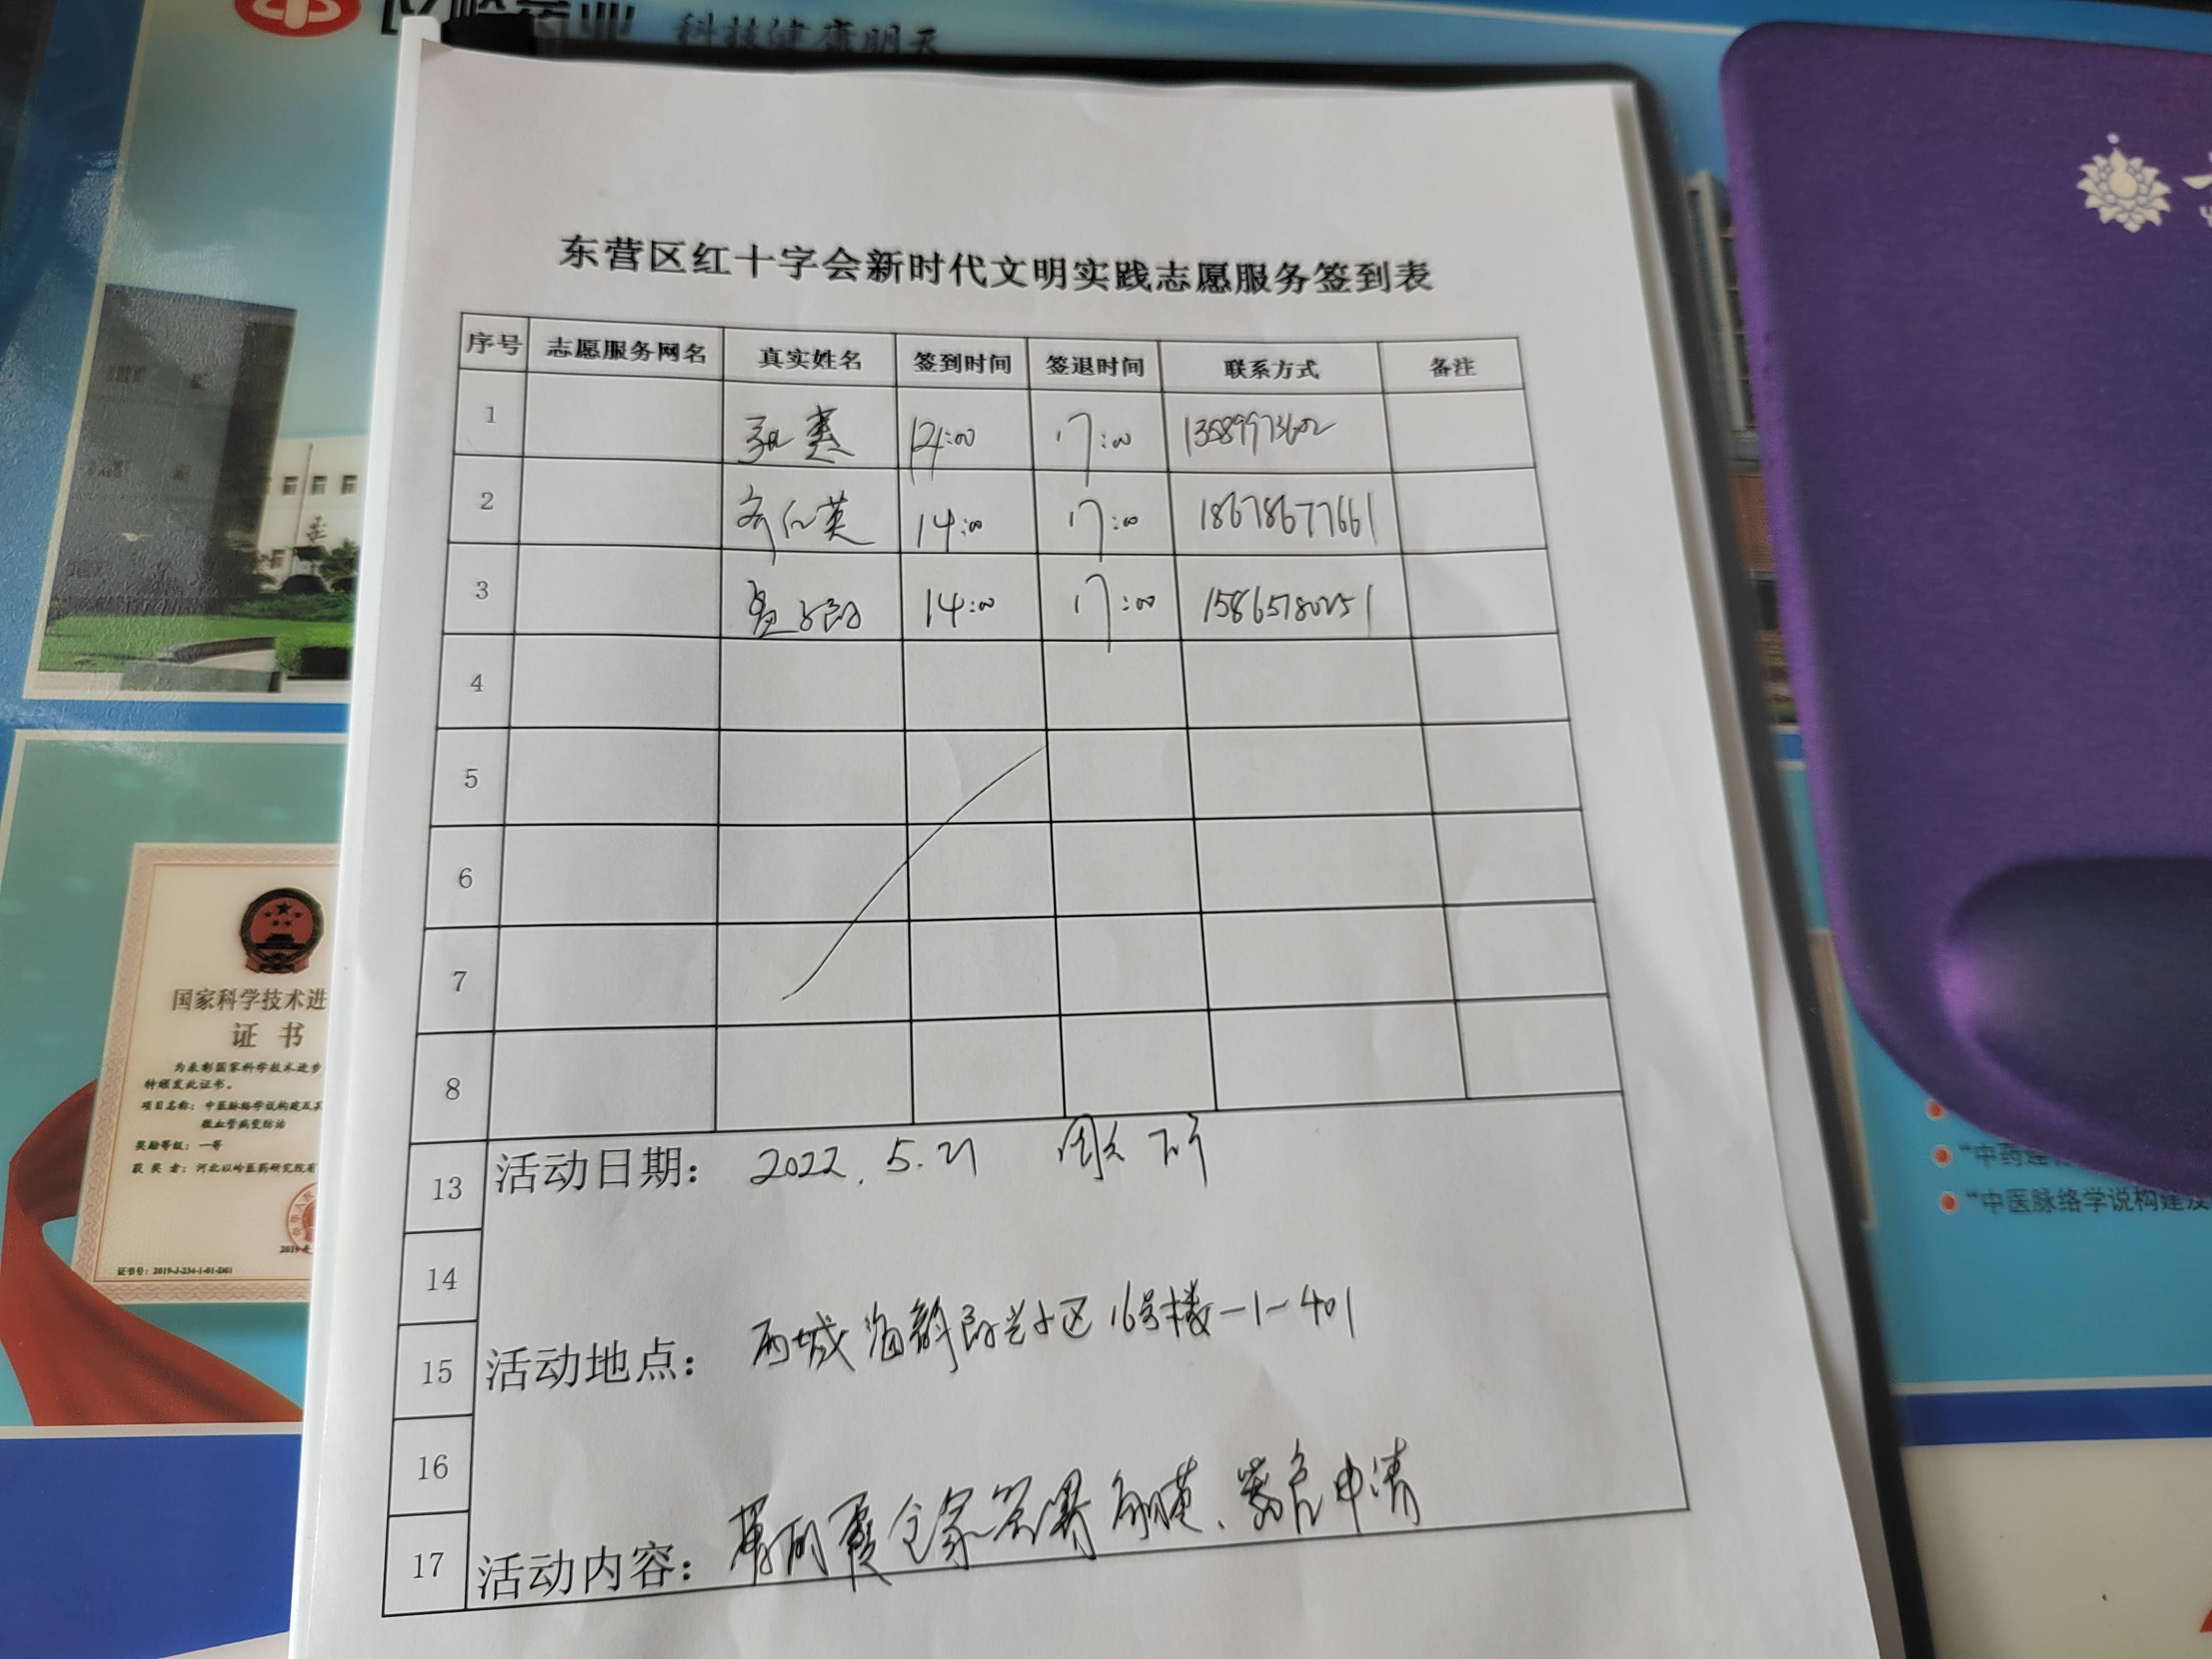 科技健康明天
东营区红十字会新时代文明实践志愿服务签到表
序号 志愿服务网名 真实姓名 签到时间 签退时间 联系方式 备注
1 14:00 17:00
2 14:00 17:00 18678677661
3 14:00 17:00 15865780251
4
5
6
7
8
13 活动日期: 2022.5.21
14
15 活动地点: 西城海韵 小区16号楼-1-401
16
17 活动内容: 申请
国家科学技术进
证书
为表彰国家科学技术进步
特颁发此证书。
项目名称: 中医脉络学说构建及其
微血管病变防治
奖励等级: 一等
获奖者: 河北以岭医药研究院有
证书号: 2019-J-234-1-01-D01
"中药
"中医脉络学说构建及